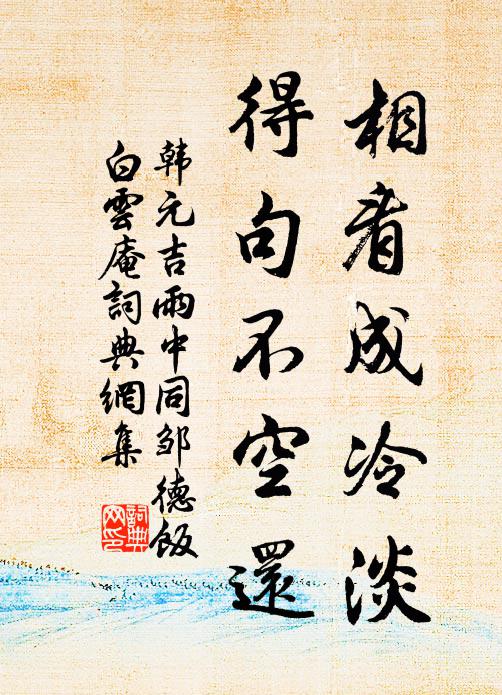 相看成冷淡
得句不空還
韩元吉雨中同邹德飯
白雲庵詞典網集
詞典
网印